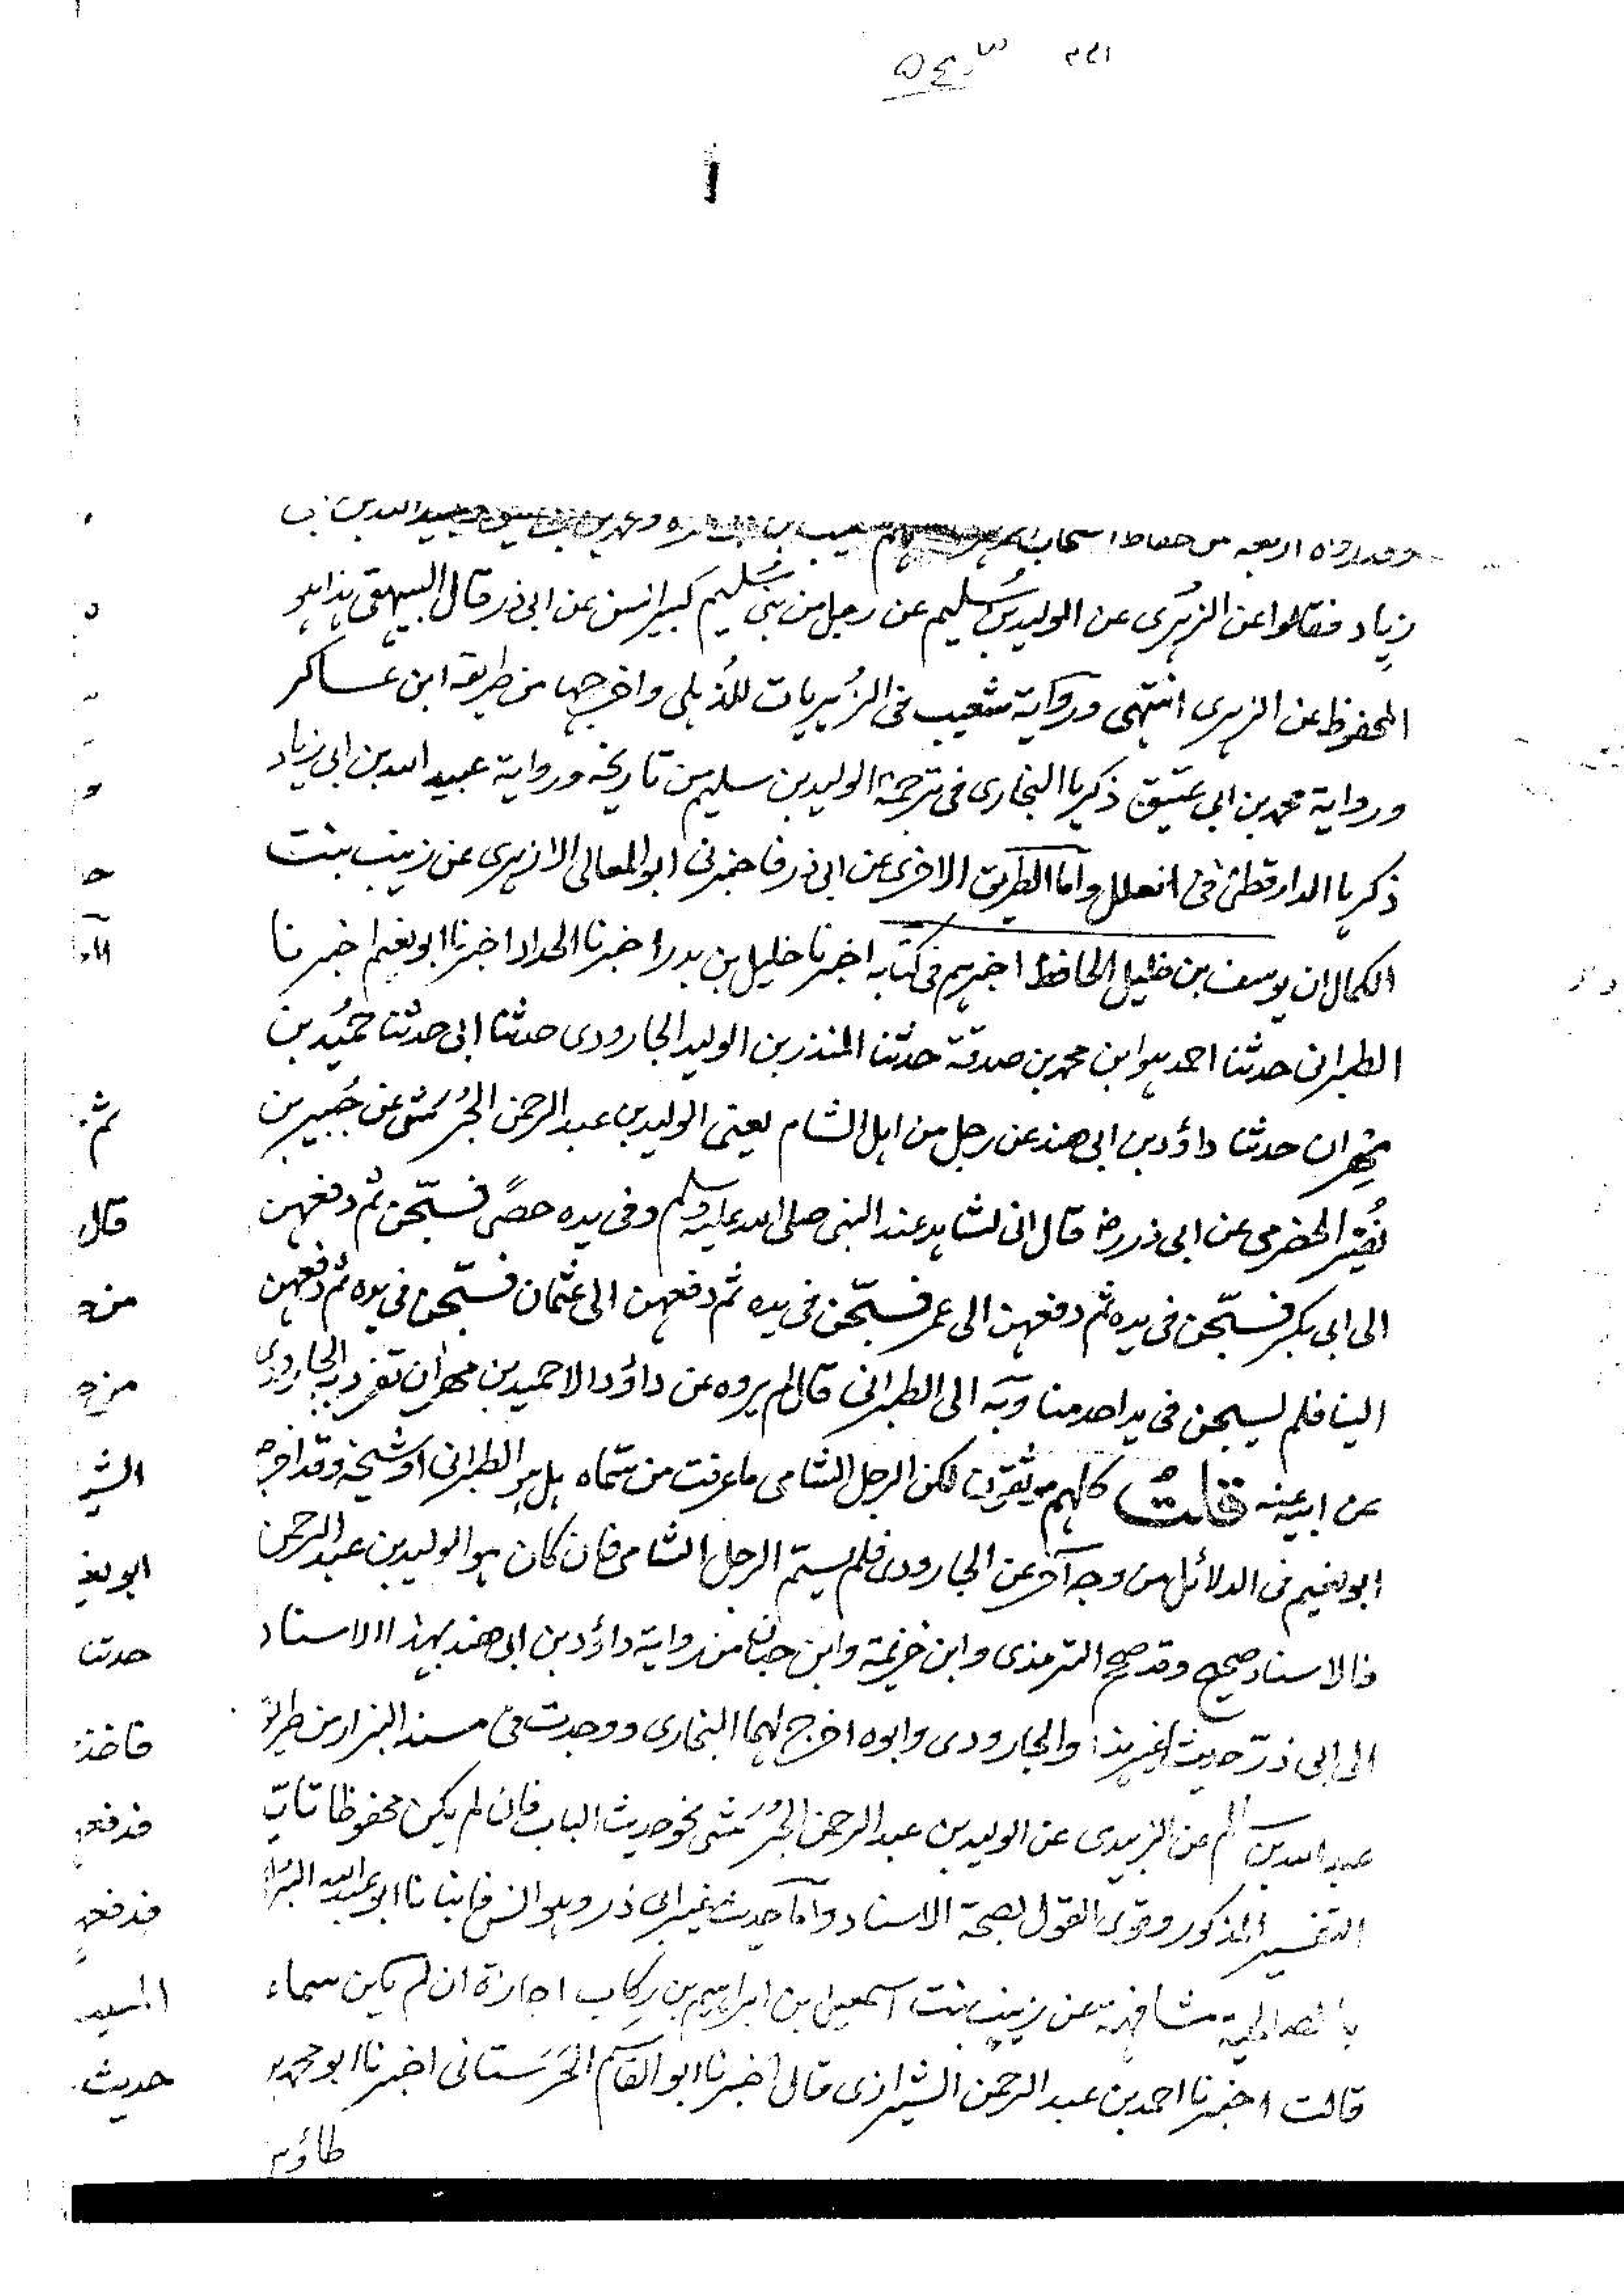 ٢٢١
وقد رواه اربعة من حفاظ اصحاب الزهري منهم شعيب بن ابي حمزة ومحمد بن ابي عتيق وعبيد الله بن ابي
زياد فقالوا عن الزهرى عن الوليد بن سُليم عن رجل من بنى سُليم كبير السن عن ابى ذر قال البيهقى هذا هو
المحفوظ عن الزهرى انتهى ورواية شعيب فى الزُهريات للذُهلى واخرجها من طريقه ابن عساكر
ورواية محمد بن ابى عتيق ذكرها البخارى فى ترجمة الوليد بن سليم من تاريخه ورواية عبيد الله بن ابى زياد
ذكرها الدارقطنى فى العلل واما الطريق الاخرى عن ابى ذر فاخبرنى ابو المعالى الازهرى عن زينب بنت
الكمال ان يوسف بن خليل الحافظ اخبرهم فى كتابه اخبرنا خليل بن بدر اخبرنا الحداد اخبرنا ابو نعيم اخبرنا
الطبرانى حدثنا احمد هو ابن محمد بن صدقة حدثنا المنذر بن الوليد الجارودى حدثنا ابى حدثنا حميد بن
مهران حدثنا داؤد بن ابى هند عن رجل من اهل الشام يعنى الوليد بن عبد الرحمن الجُرَشى عن جُبير بن
نُفير الحضرمى عن ابى ذر رض قال انى لشاهد عند النبى صلى الله عليه وسلم وفى يده حصًى فسبّحن ثم دفعهن
الى ابى بكر فسبّحن فى يده ثم دفعهن الى عمر فسبّحن فى يده ثم دفعهن الى عثمان فسبّحن فى يده ثم دفعهن
الينا فلم يسبحن فى يد احد منا وبه الى الطبرانى قال لم يروه عن داؤد الا حميد بن مهران تفرد به الجارودى
عن ابيه عنه قلتُ كلهم موثقون لكن الرجل الشامى ما عرفت من سمّاه هل هو الطبرانى او شيخه وقد اخرجه
ابو نعيم فى الدلائل من وجه آخر عن الجارودى فلم يسم الرجل الشامى فان كان هو الوليد بن عبد الرحمن
فالاسناد صحيح وقد صحح الترمذى وابن خزيمة وابن حبان من رواية داؤد بن ابى هند بهذا الاسناد
الى ابى ذر حديثا غير هذا والجارودى وابوه اخرج لهما البخارى ووجدت فى مسند البزار من طريق
عبد الله بن سالم عن الزبيدى عن الوليد بن عبد الرحمن الجُرَشى نحو حديث الباب فان لم يكن محفوظا تأيّد
التفسير المذكور وقوى القول بصحة الاسناد واما حديث غير ابى ذر وهو انس فانبانا ابو عبد الله
بالصالحية مشافهة عن زينب بنت اسمعيل بن ابراهيم بن اجازة ان لم يكن سماعا
قالت اخبرنا احمد بن عبد الرحمن الشيرازى قال اخبرنا ابو القاسم الحَرَستانى اخبرنا ابو محمد بن
طاؤس
ثم
قال
الشير
ابو نعيم
حدثنا
فاخذ
فدفعهن
فدفعهن
المسيب
حديث